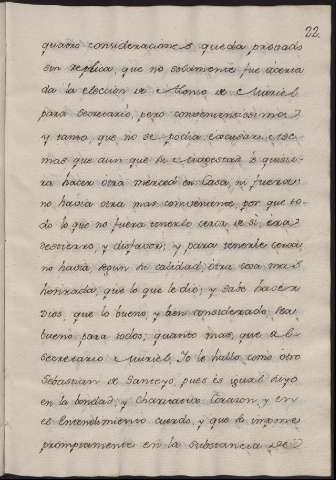 22
quatro consideraciones queda provado
sin replica, que no solamente fue acerta
da la eleccion de Alonso de Muriel
para Secretario, pero convenientissima
y tanto, que no se podia escusar
mas que aun que Su Magestad le quisie-
ra hacer otra merced en Casa, ni fuera
no havia otra mas conveniente, por que to-
do lo que no fuera tenerle cerca de si, era
destierro, y disfavor; y para tenerle cerca
no havia, segun su calidad, otra cosa mas
honrada, que lo que le dió; y sabe hacer
Dios, que lo bueno, y bien considerado, sea
bueno para todos; quanto mas, que a el
Secretario Muriel, Yo le hallo como otro
Sebastian de Santoyo, pues es igual suyo
en la bondad, y Charitativo Corazon, y en
el Entendimiento cuerdo, y que le imprime
promptamente en la substancia de